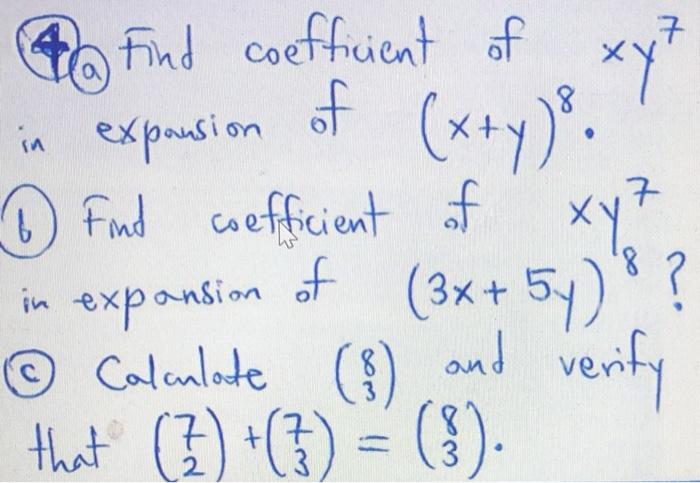 4 a Find coefficient of xy⁷
in expansion of (x+y)⁸.
b Find coefficient of xy⁷
in expansion of (3x+5y)⁸?
c Calculate (8 3) and verify
that (7 2)+(7 3) = (8 3).